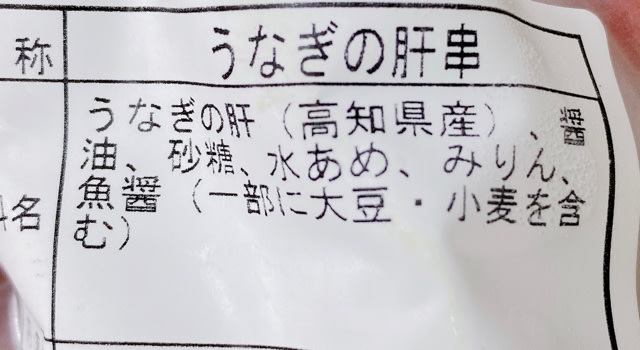 称 うなぎの肝串
うなぎの肝（高知県産）、醤
油、砂糖、水あめ、みりん、
名 魚醤（一部に大豆・小麦を含
む）